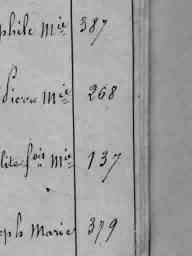 phile Mie 387
Pierre Mie 268
lite fois Mie 137
eph Marie 379